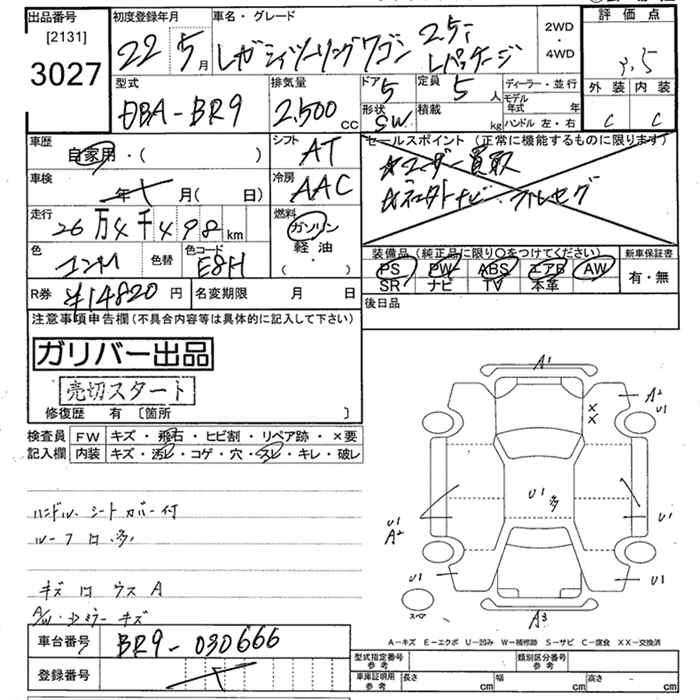 出品番号 初度登録年月 車名・グレード 評価点
[2131]
3027
22 5月 レガシィツーリングワゴン 2.5i Lパッケージ
2WD・4WD
3.5
外装 内装
C C
型式 排気量 ドア 定員 ディーラー・並行
DBA-BR9 2.500cc 5 5人 モデル年式 年
形状 SW 積載 kg ハンドル 左・右
車歴 シフト セールスポイント (正常に機能するものに限ります)
自家用・( ) AT ☆ユーザー買取
車検 冷房
年 月( 日) AAC
走行 燃料
26万4千498km ガソリン
軽油
・( )
色 色替 色コード
E8H
装備品(純正品に限り○をつけてください) 新車保証書
PS PW ABS エアB AW 有・無
SR ナビ TV 本革
R券 ¥14820円 名変期限 月 日
後日品
注意事項申告欄(不具合内容等は具体的に記入して下さい)
ガリバー出品
売切スタート
修復歴 有 〔箇所 〕
検査員 FW キズ・飛石・ヒビ割・リペア跡・×要
記入欄 内装 キズ・汚レ・コゲ・穴・スレ・キレ・破レ
A1
A2
U1
X
X
U1 多
U1
A2
U1
U1
U1
A3
スペア
ハンドル、シートカバー付
キズ
車台番号 BR9-030666
登録番号
A-キズ E-エクボ U-凹み W-補修跡 S-サビ C-腐食 XX-交換済
型式指定番号 参考 類別区分番号 参考
車庫証明用 参考 長さ cm 幅 cm 高さ cm